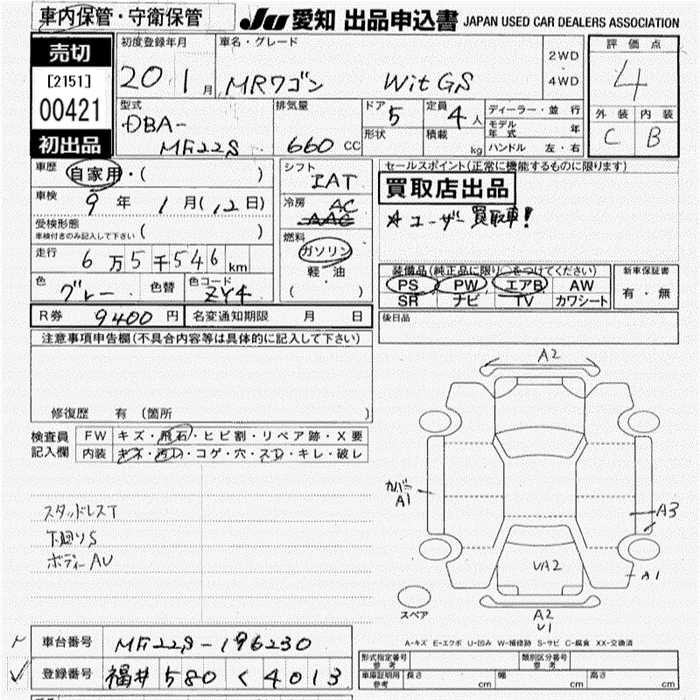 車内保管・守衛保管
JU 愛知 出品申込書 JAPAN USED CAR DEALERS ASSOCIATION
売切
[2151]
00421
初出品
初度登録年月
20 1 月
車名・グレード
MRワゴン Wit GS
2WD
4WD
評価点
4
外装 内装
C B
型式
DBA-
MF22S
排気量
660 CC
ドア 5
形状
定員 4人
積載 kg
ディーラー・並行
モデル年式 年
ハンドル 左・右
車歴 自家用・( )
車検 9 年 1 月(12日)
受検形態
車検付きのみ記入して下さい ( )
走行 6万5千546 km
色 グレー 色替 色コード ZY4
シフト
IAT
冷房 AC
AAC
燃料
ガソリン
軽・油
( )
セールスポイント(正常に機能するものに限ります)
買取店出品
☆ユーザー買取車!
装備品(純正品に限り○をつけてください)
PS PW エアB AW
SR ナビ TV カワシート
新車保証書
有・無
R券 9400 円 名変通知期限 月 日
後日品
注意事項申告欄(不具合内容等は具体的に記入して下さい)
修復歴 有 (箇所 )
検査員記入欄
FW キズ・飛石・ヒビ割・リペア跡・X要
内装 キズ・汚レ・コゲ・穴・スレ・キレ・破レ
スタッドレスT
下廻りS
ボディーAU
A2
カバー
A1
A3
UA2
A1
スペア
A2
U1
A-キズ E-エクボ U-凹み W-補修跡 S-サビ C-腐食 XX-交換済
車台番号 MF22S-196230
登録番号 福井 580 く 4013
形式指定番号 参考 類別区分番号 参考
車庫証明用 参考 長さ cm 幅 cm 高さ cm